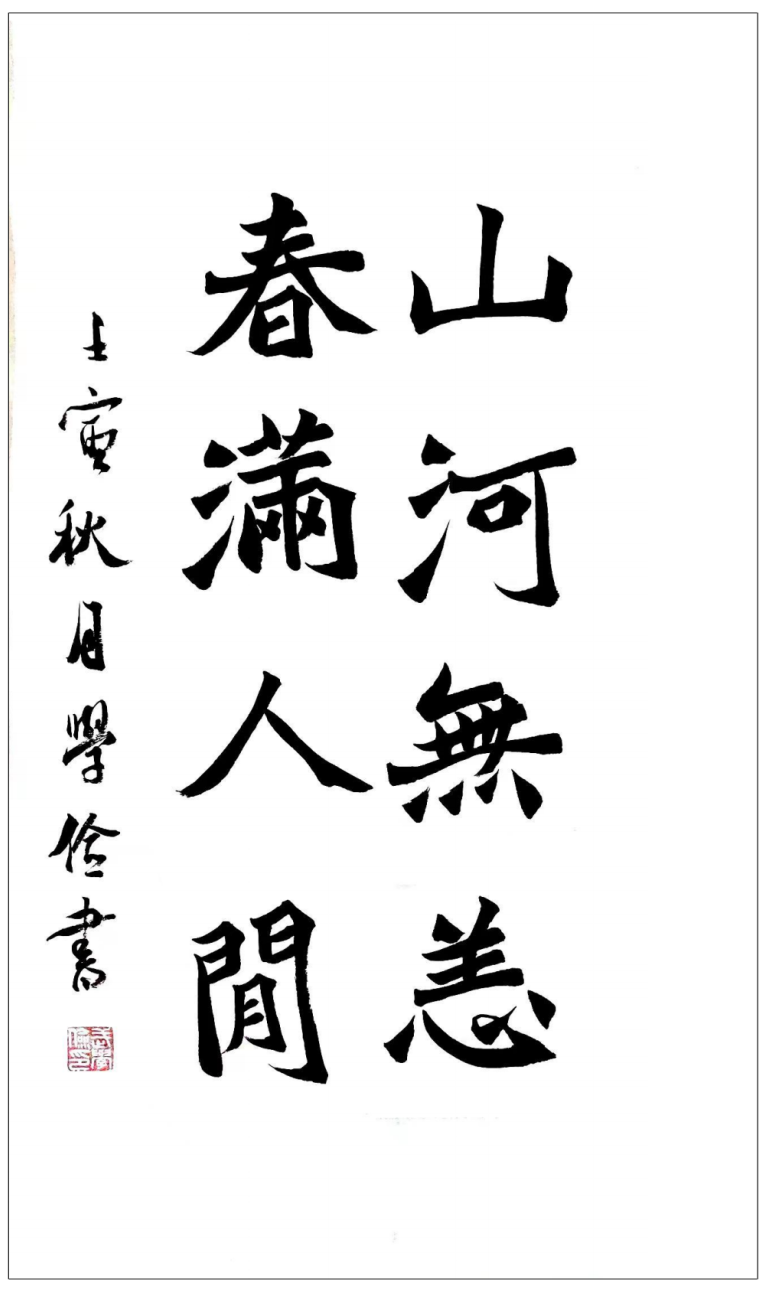 山河無恙
春滿人閒
壬寅秋月學儉書